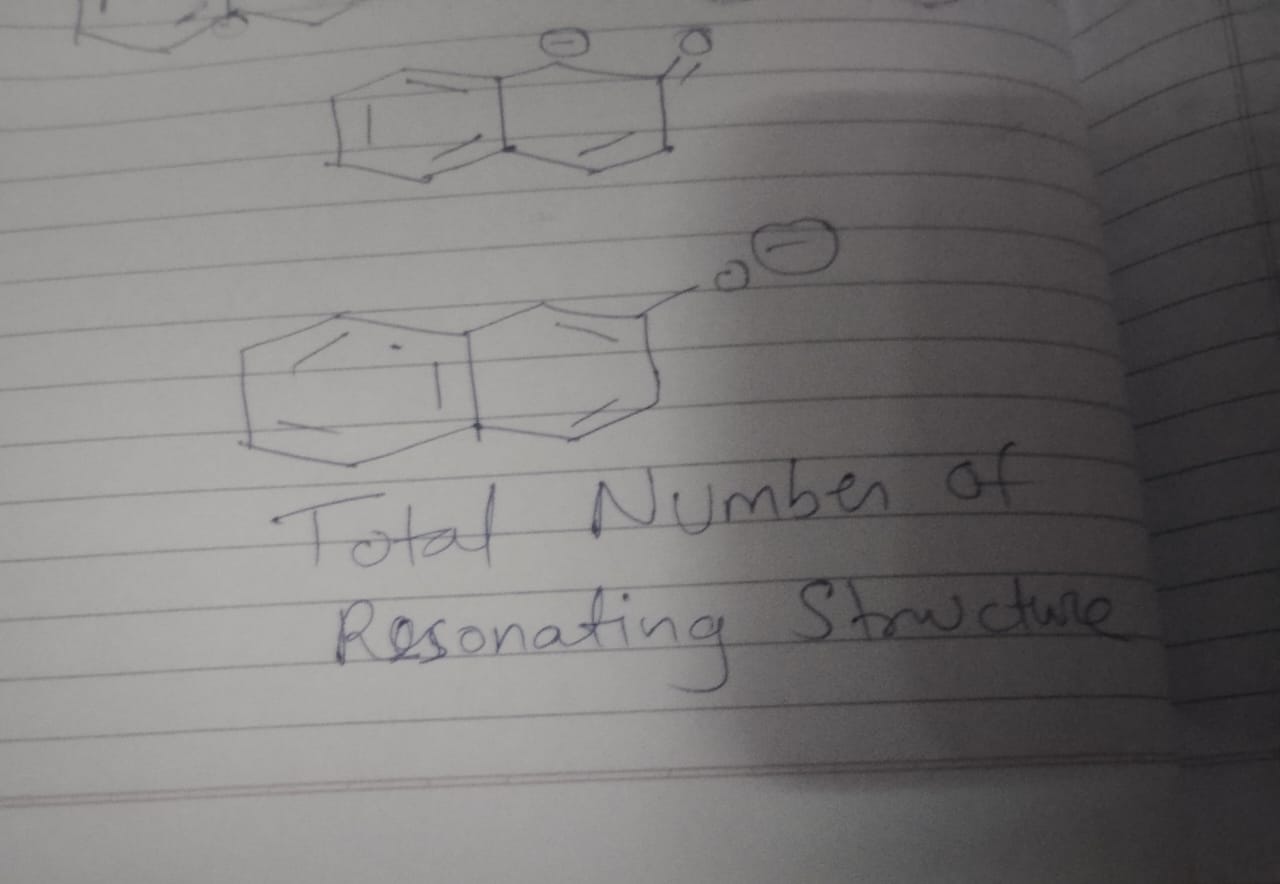 ⊖ O
O ⊖
Total Number of
Resonating Structure